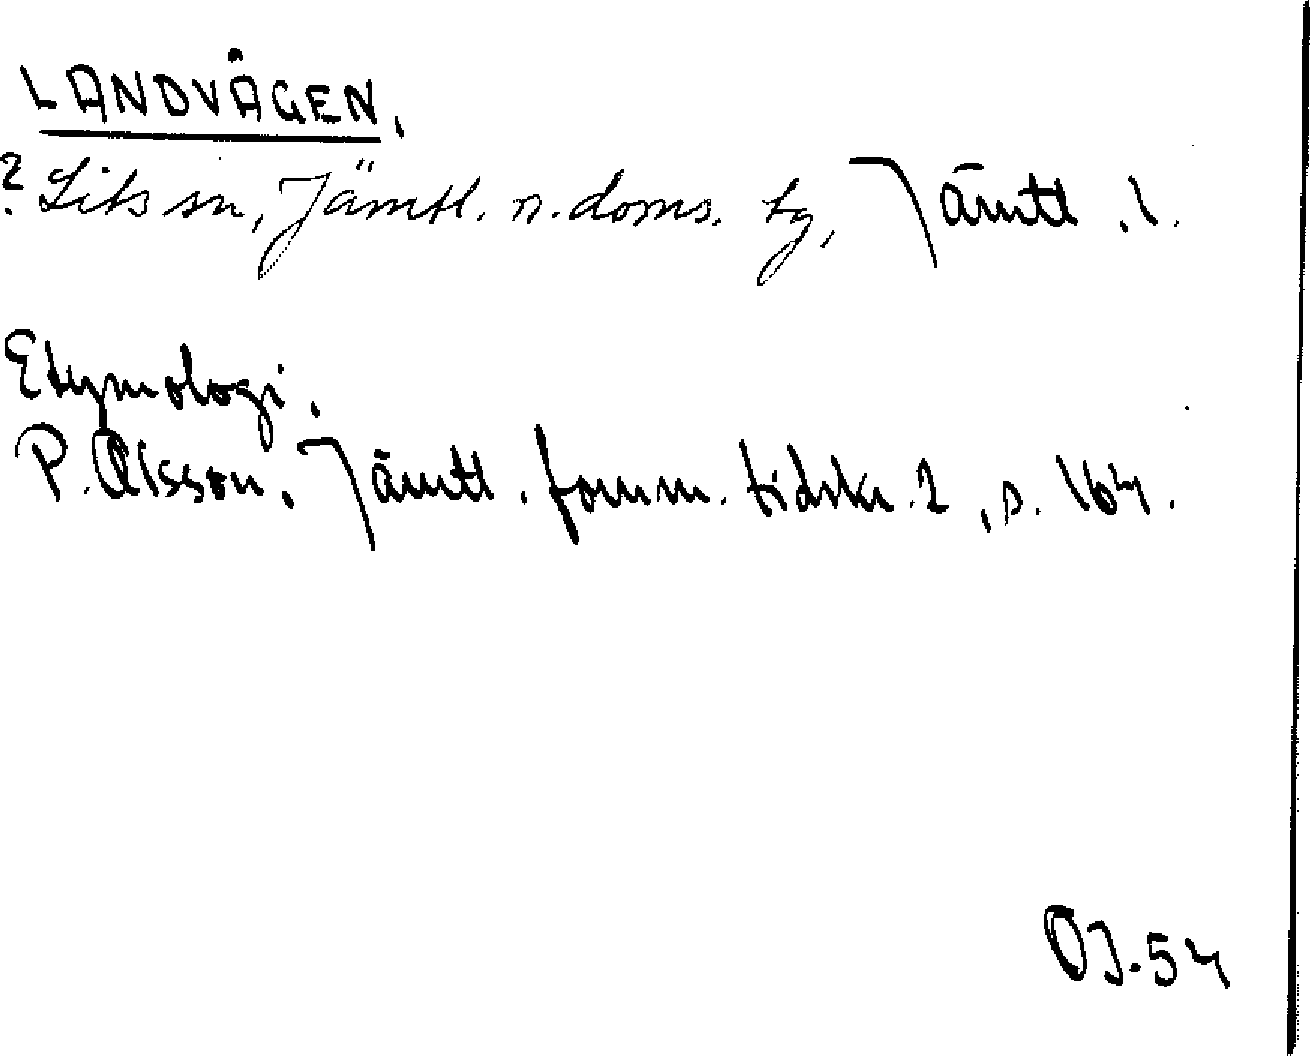 LANDVÄGEN.
? Lits sn, Jämtl. n. doms. tg, Jämtl. l.
Etymologi.
P. Olsson, Jämtl. fornm. tidskr. 2, s. 164.
OJ.54